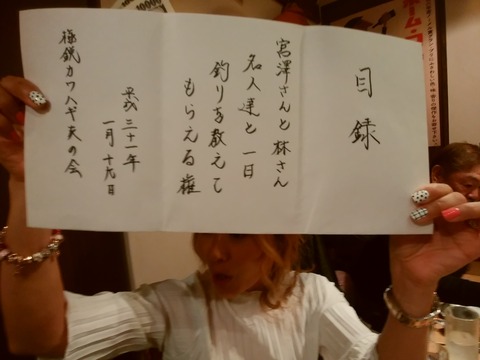 目録
宮澤さんと林さん
名人達と一日
釣りを教えて
もらえる権
平成三十一年
一月十九日
極鋭カワハギ夫の会
10000